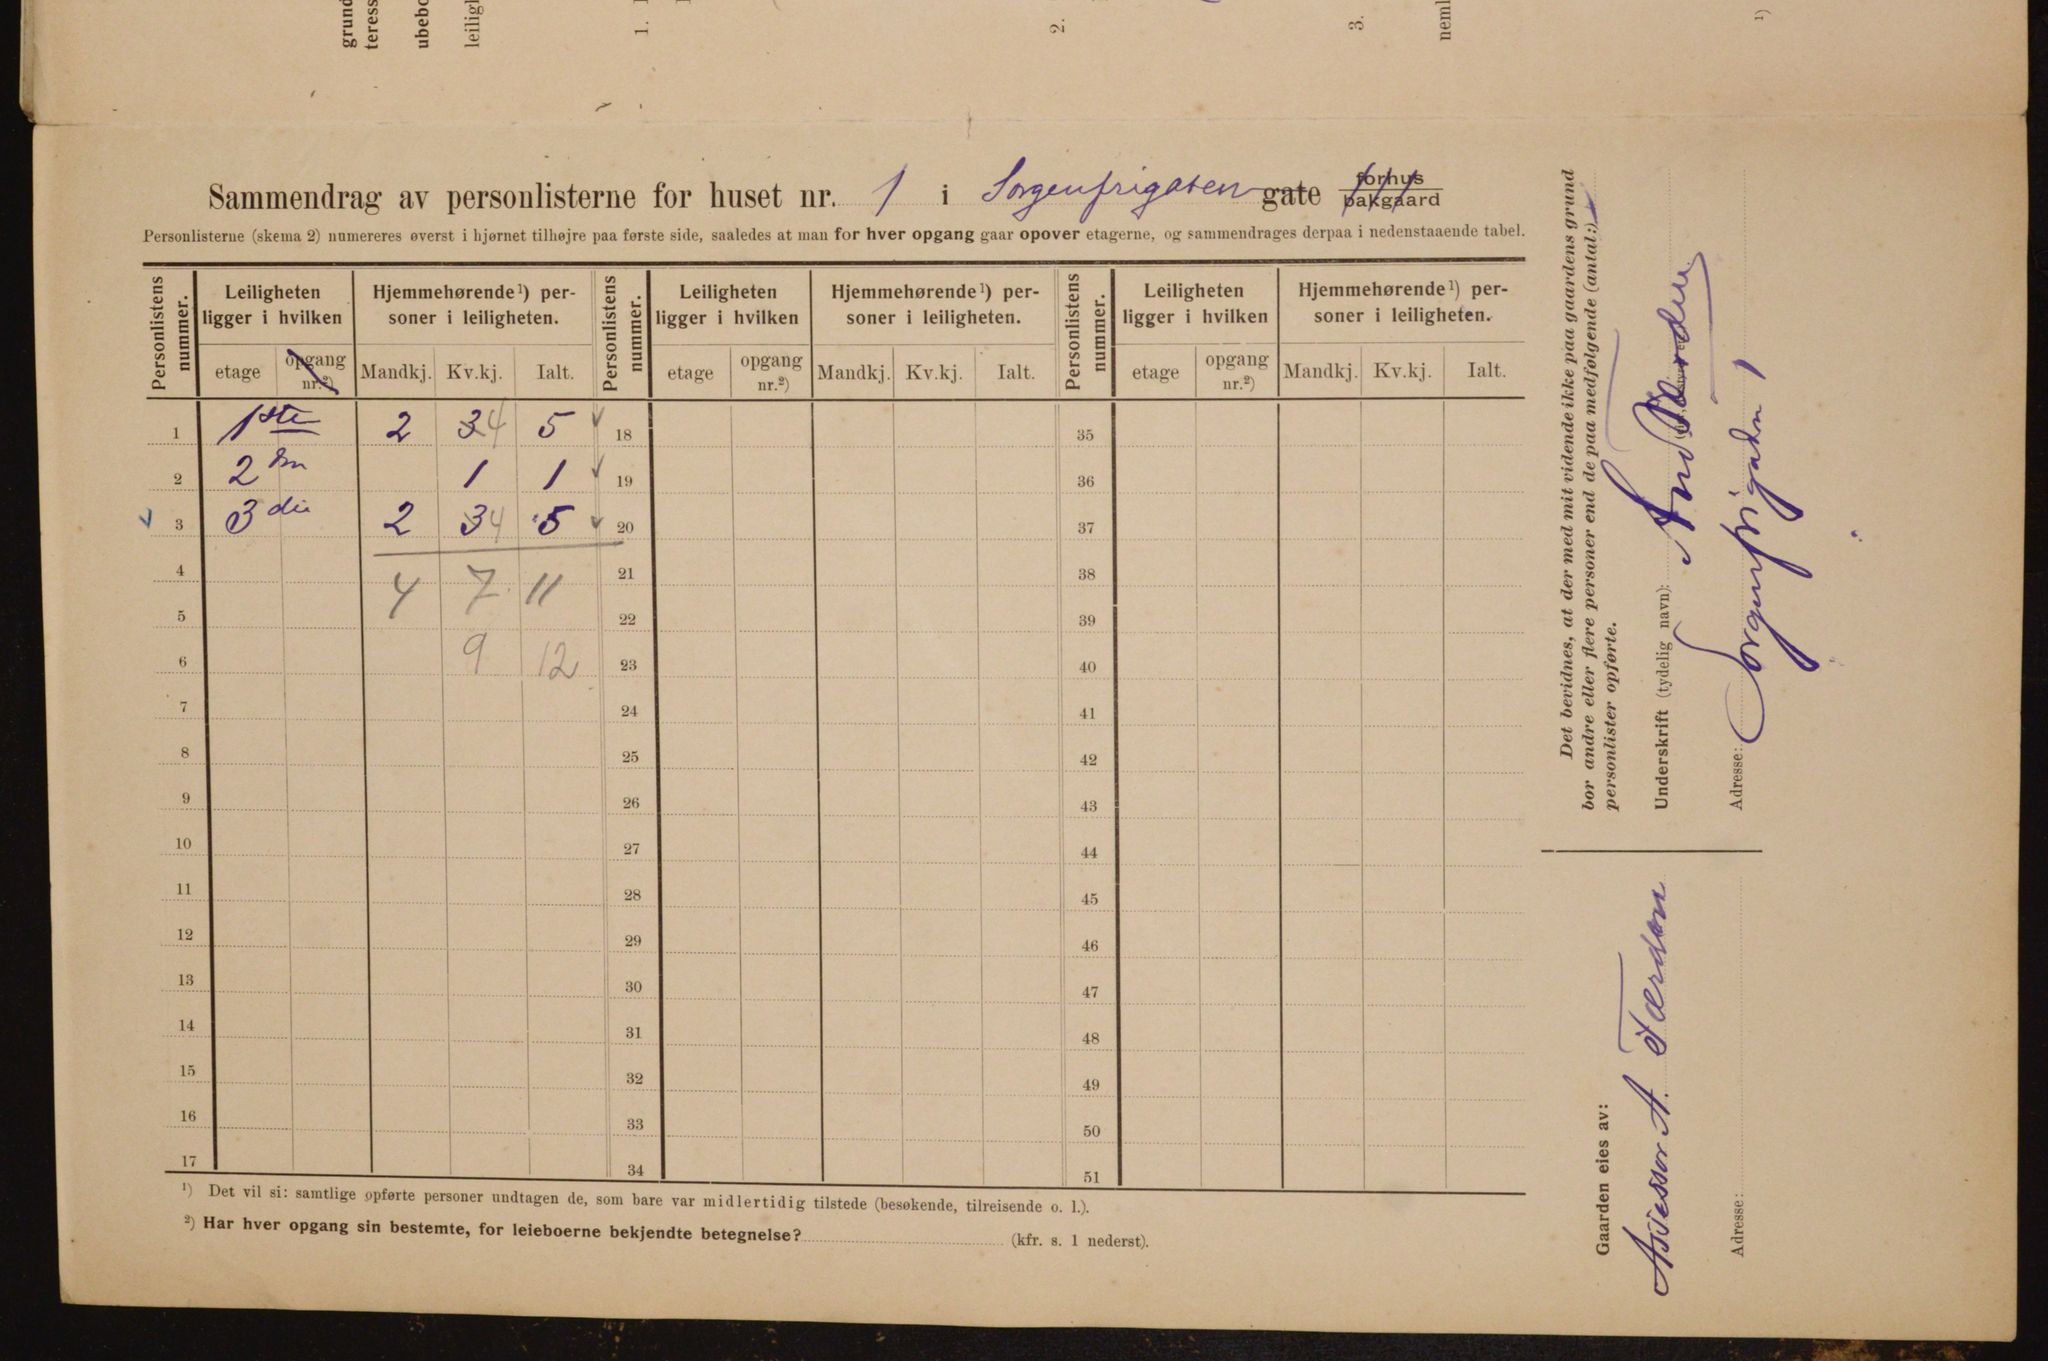 grund
teress
ubebo
leiligh
1.
2.
3.
neml
1)
Sammendrag av personlisterne for huset nr. 1 i Sorgenfrigaten gate forhus pakgaard
Personlisterne (skema 2) numereres øverst i hjørnet tilhøjre paa første side, saaledes at man for hver opgang gaar opover etagerne, og sammendrages derpaa i nedenstaaende tabel.
Personlistens nummer. Leiligheten ligger i hvilken Hjemmehørende 1) personer i leiligheten. Personlistens nummer. Leiligheten ligger i hvilken Hjemmehørende 1) personer i leiligheten. Personlistens nummer. Leiligheten ligger i hvilken Hjemmehørende 1) personer i leiligheten.
etage opgang nr.2) Mandkj. Kv.kj. Ialt. etage opgang nr.2) Mandkj. Kv.kj. Ialt. etage opgang nr.2) Mandkj. Kv.kj. Ialt.
1 1ste 2 3 4 5 18 35
2 2den 1 1 19 36
3 3die 2 3 4 5 20 37
4 4 7 11 21 38
5 22 39
6 9 12 23 40
7 24 41
8 25 42
9 26 43
10 27 44
11 28 45
12 29 46
13 30 47
14 31 48
15 32 49
16 33 50
17 34 51
1) Det vil si: samtlige opførte personer undtagen de, som bare var midlertidig tilstede (besøkende, tilreisende o. l.).
2) Har hver opgang sin bestemte, for leieboerne bekjendte betegnelse? (kfr. s. 1 nederst).
Det bevidnes, at der med mit vidende ikke paa gaardens grund
bor andre eller flere personer end de paa medfølgende (antal:)
personlister opførte.
Underskrift (tydelig navn):
Adresse: Sorgenfrigaden 1
Gaarden eies av:
Assessor A. Færden
Adresse: